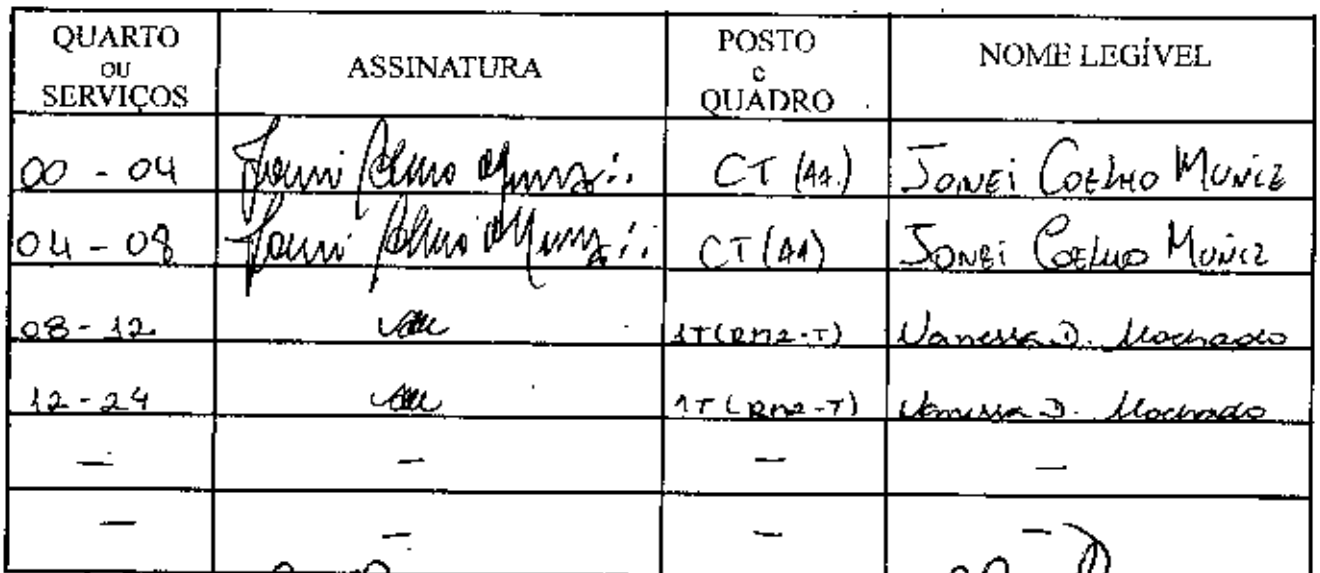 QUARTO OU SERVIÇOS ASSINATURA POSTO e QUADRO NOME LEGÍVEL
00 - 04 CT (AA) JONEi COELHO MUNIZ
04 - 08 CT (AA) JONEi COELHO MUNIZ
08 - 12 1T (RM2-T) Vanessa D. Machado
12 - 24 1T (RM2-T) Vanessa D. Machado
— — — —
— — — —